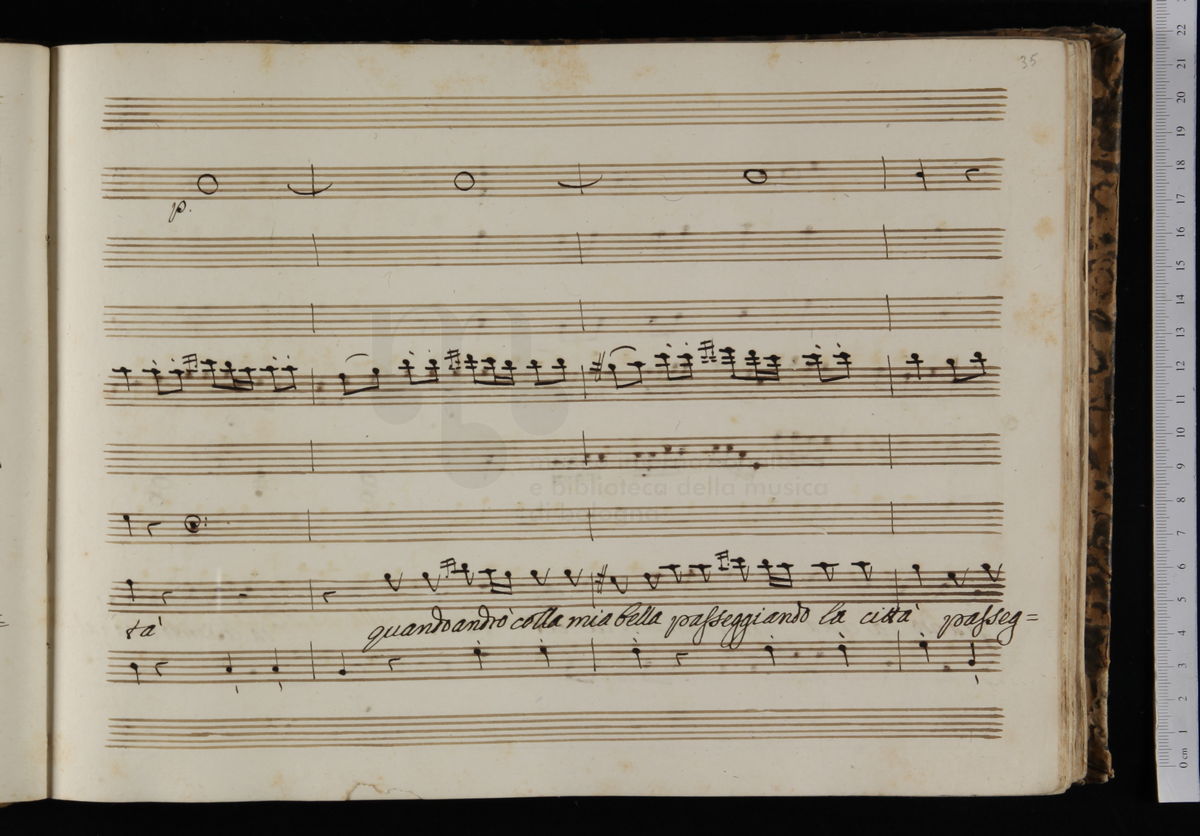 35
p.
e biblioteca della musica
tà quando andrò colla mia bella passeggiando la città passeg=
22
21
20
19
18
17
16
15
14
13
12
11
10
9
8
7
6
5
4
3
2
1
0 cm